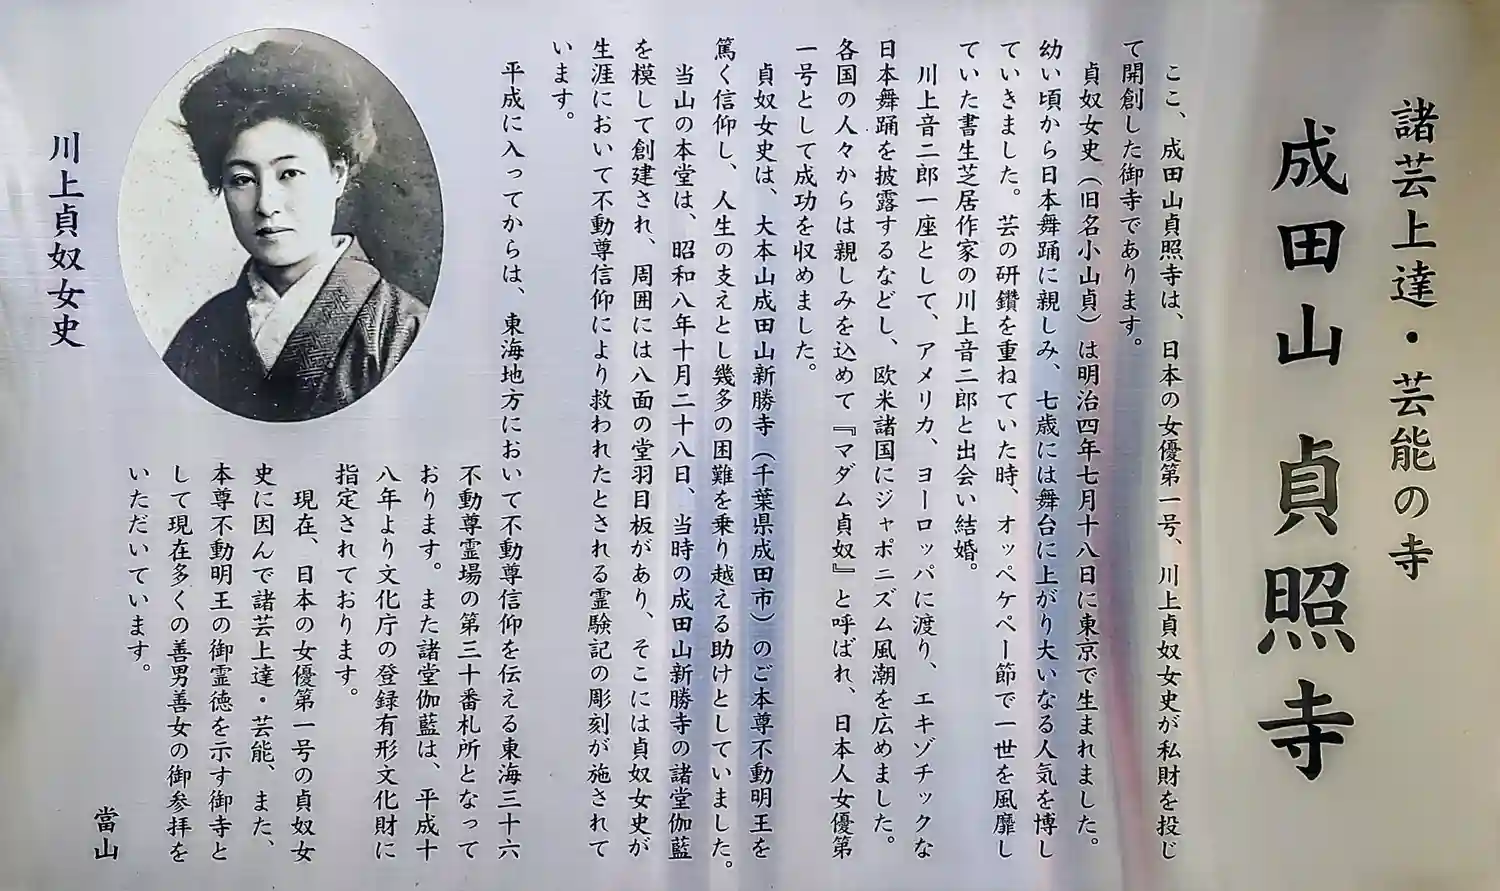 諸芸上達・芸能の寺
成田山 貞照寺
ここ、成田山貞照寺は、日本の女優第一号、川上貞奴女史が私財を投じ
て開創した御寺であります。
貞奴女史（旧名小山貞）は明治四年七月十八日に東京で生まれました。
幼い頃から日本舞踊に親しみ、七歳には舞台に上がり大いなる人気を博し
ていきました。芸の研鑽を重ねていた時、オッペケペー節で一世を風靡し
ていた書生芝居作家の川上音二郎と出会い結婚。
川上音二郎一座として、アメリカ、ヨーロッパに渡り、エキゾチックな
日本舞踊を披露するなどし、欧米諸国にジャポニズム風潮を広めました。
各国の人々からは親しみを込めて『マダム貞奴』と呼ばれ、日本人女優第
一号として成功を収めました。
貞奴女史は、大本山成田山新勝寺（千葉県成田市）のご本尊不動明王を
篤く信仰し、人生の支えとし幾多の困難を乗り越える助けとしていました。
当山の本堂は、昭和八年十月二十八日、当時の成田山新勝寺の諸堂伽藍
を模して創建され、周囲には八面の堂羽目板があり、そこには貞奴女史が
生涯において不動尊信仰により救われたとされる霊験記の彫刻が施されて
います。
平成に入ってからは、東海地方において不動尊信仰を伝える東海三十六
不動尊霊場の第三十番札所となって
おります。また諸堂伽藍は、平成十
八年より文化庁の登録有形文化財に
指定されております。
現在、日本の女優第一号の貞奴女
史に因んで諸芸上達・芸能、また、
本尊不動明王の御霊徳を示す御寺と
して現在多くの善男善女の御参拝を
いただいています。
當山
川上貞奴女史